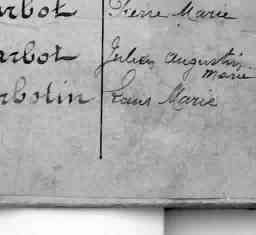 arbot Pierre Marie
arbot Julien Augustin
Marie
rbotin Marie